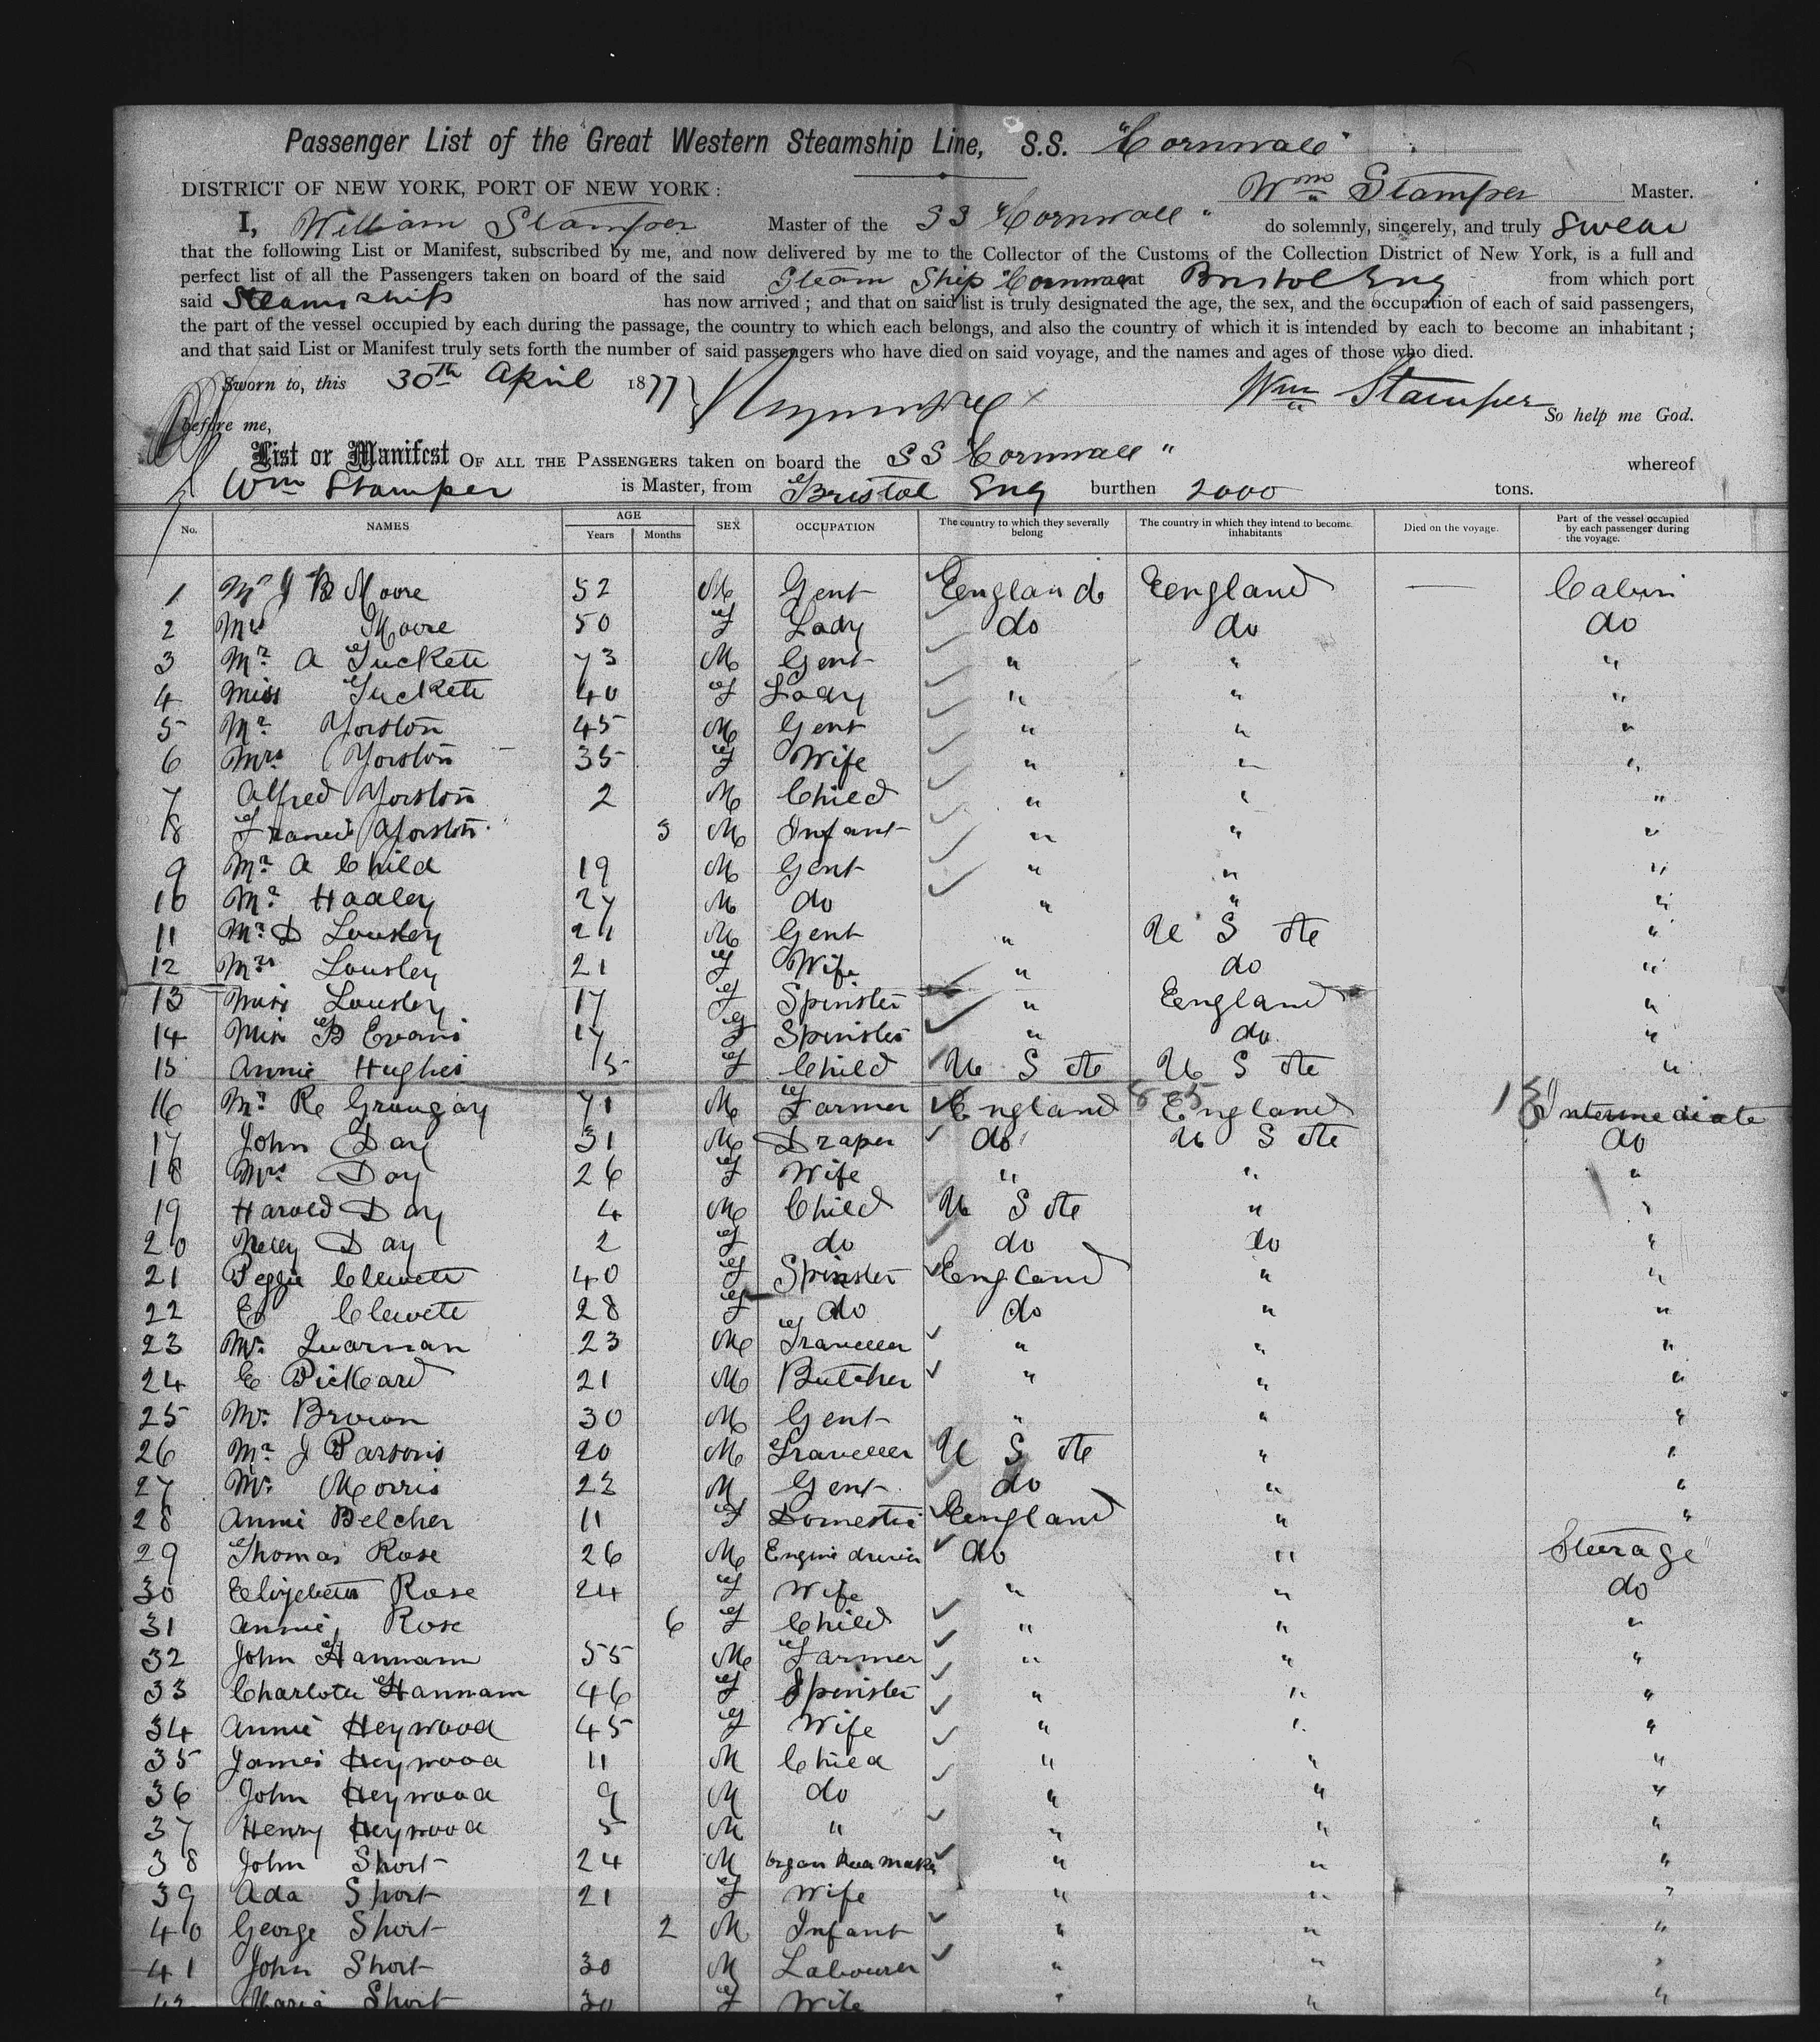 Passenger List of the Great Western Steamship Line, S.S. "Cornwall"
DISTRICT OF NEW YORK, PORT OF NEW YORK: Wm Stamper Master.
I, William Stamper Master of the SS Cornwall" do solemnly, sincerely, and truly Swear
that the following List or Manifest, subscribed by me, and now delivered by me to the Collector of the Customs of the Collection District of New York, is a full and
perfect list of all the Passengers taken on board of the said Steam Ship Cornwall at Bristol Eng from which port
said Steamship has now arrived; and that on said list is truly designated the age, the sex, and the occupation of each of said passengers,
the part of the vessel occupied by each during the passage, the country to which each belongs, and also the country of which it is intended by each to become an inhabitant;
and that said List or Manifest truly sets forth the number of said passengers who have died on said voyage, and the names and ages of those who died.
Sworn to, this 30th April 1877 Wm Stamper So help me God.
before me,
List or Manifest OF ALL THE PASSENGERS taken on board the SS Cornwall" whereof
Wm Stamper is Master, from Bristol Eng burthen 2000 tons.
No. NAMES AGE Years Months SEX OCCUPATION The country to which they severally belong The country in which they intend to become inhabitants Died on the voyage. Part of the vessel occupied by each passenger during the voyage.
1 Mr J B Moore 52 M Gent England England — Cabin
2 Mrs Moore 50 F Lady do do do
3 Mr A Tuckett 73 M Gent " " "
4 Miss Tuckett 40 F Lady " " "
5 Mr Yorston 45 M Gent " " "
6 Mrs Yorston 35 F Wife " " "
7 Alfred Yorston 2 M Child " " "
8 Francis Yorston 3 M Infant " " "
9 Mr A Child 19 M Gent " " "
10 Mr 27 M do " " "
11 Mr D Lousley 24 M Gent " U Ste "
12 Mrs Lousley 21 F Wife " do "
13 Miss Lousley 17 F Spinster " England "
14 Miss B Evans 17 F Spinster " do "
15 Annie Hughes F Child U S Ste U S Ste "
16 Mr 71 M Farmer England England Intermediate
17 John Day 31 M Draper do U S Ste do
18 Mrs Day 26 F Wife " " "
19 Harold Day 4 M Child U S Ste " "
20 Nelly Day 2 F do do do "
21 Clewett 40 F Spinster England " "
22 Clewett 28 F do do " "
23 Mr Quarman 23 M Traveller " " "
24 E Pickard 21 M Butcher " " "
25 Mr Brown 30 M Gent " " "
26 Mr J Parsons 20 M Traveller U S Ste " "
27 Mr Morris 22 M Gent do " "
28 Annie Belcher 11 F Domestic England " "
29 Thomas Rose 26 M Engine driver do " Steerage
30 Elizabeth Rose 24 F Wife " " do
31 Annie Rose 6 F Child " " "
32 John Hannam 55 M Farmer " " "
33 Charlotte Hannam 46 F Spinster " " "
34 Annie Heywood 45 F Wife " " "
35 James Heywood 11 M Child " " "
36 John Heywood 9 M do " " "
37 Henry Heywood 5 M " " " "
38 John Short 24 M Organ maker " " "
39 Ada Short 21 F Wife " " "
40 George Short 2 M Infant " " "
41 John Short 30 M Labourer " " "
42 Maria Short 30 F Wife " " "